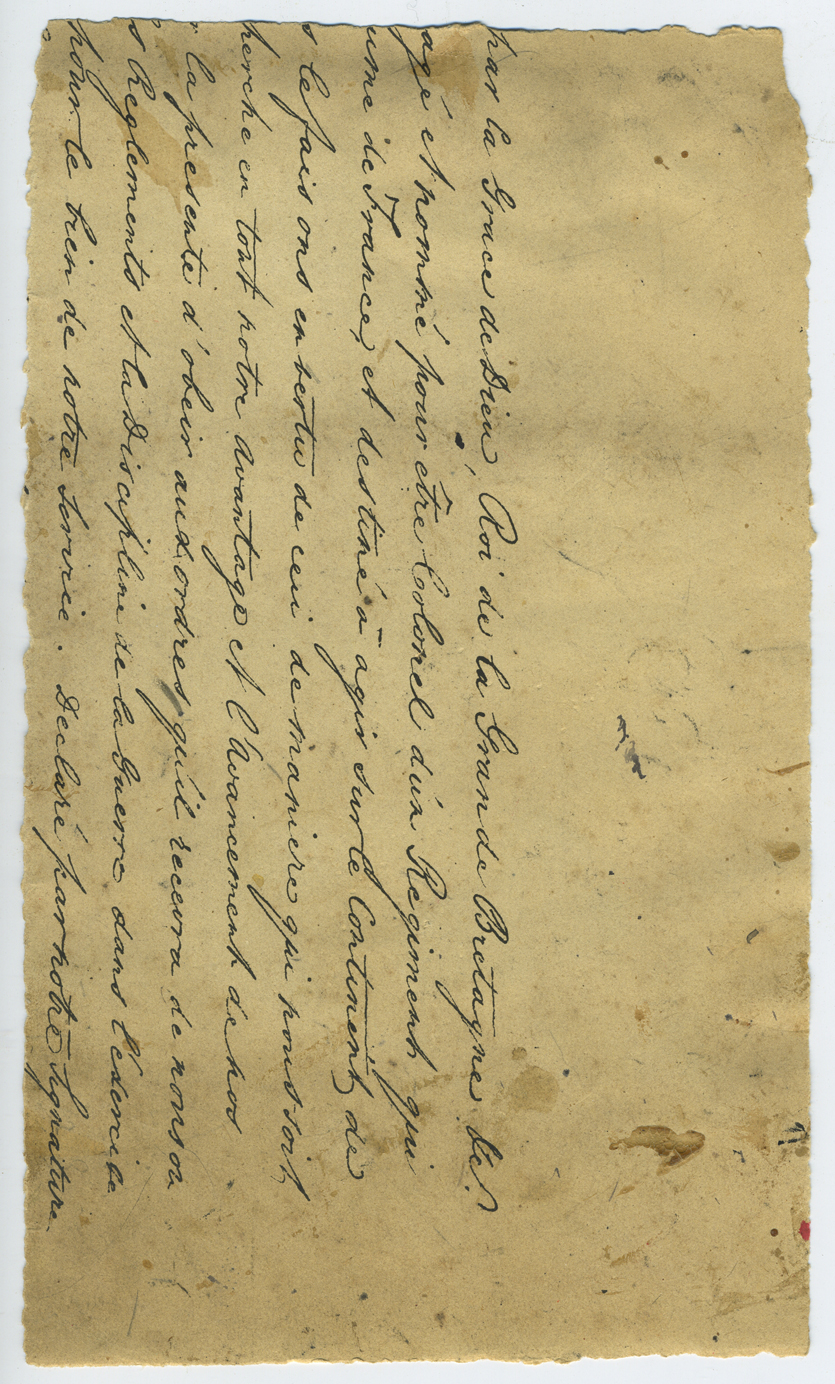 par la Grace de Dieu, Roi de la Grande Bretagne &c.
agé et nommé pour être Colonel d'un Regiment qui
ume de France, et destiné à agir sur le Continent, de
s le faisons en vertu de ceci de maniere qui nous soit
herche en tout notre avantage et l'Avancement de nos
r la presente d'obeir aux ordres qu'il recevra de nous ou
s Reglements et la Discipline de la Guerre dans l'éxercice
pour le bien de notre Service. Declaré par notre Signature